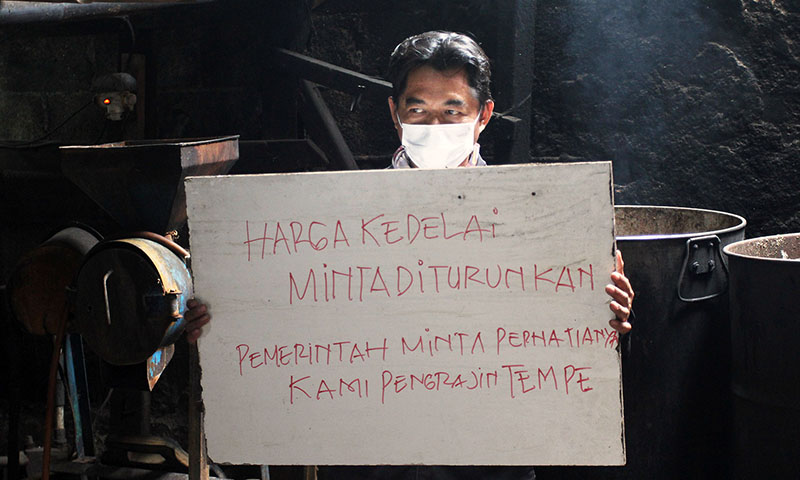 HARGA KEDELAI
MINTA DITURUNKAN
PEMERINTAH MINTA PERHATIANYA
KAMI PENGRAJIN TEMPE